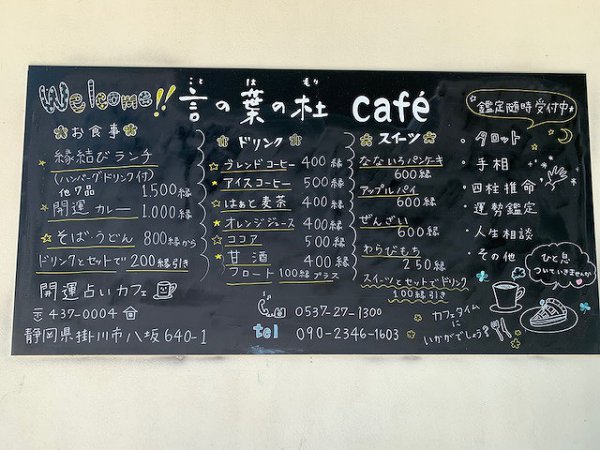 Welcome!! 言の葉の杜 café
こと は もり
お食事
縁結びランチ
(ハンバーグドリンク付)
他7品 1,500縁
開運カレー 1,000縁
そば・うどん 800縁から
ドリンクとセットで200縁引き
開運占いカフェ
〒437-0004
静岡県掛川市八坂640-1
ドリンク
ブレンドコーヒー 400縁
アイスコーヒー 500縁
はぁと麦茶 400縁
オレンジジュース 400縁
ココア 500縁
甘酒 400縁
フロート100縁プラス
0537-27-1300
tel 090-2346-1603
スイーツ
なないろパンケーキ
600縁
アップルパイ
600縁
ぜんざい
600縁
わらびもち
250縁
スイーツとセットでドリンク
100縁引き
鑑定随時受付中
・タロット
・手相
・四柱推命
・運勢鑑定
・人生相談
・その他
ひと息
ついていきませんか
カフェタイム
に
いかがでしょう?